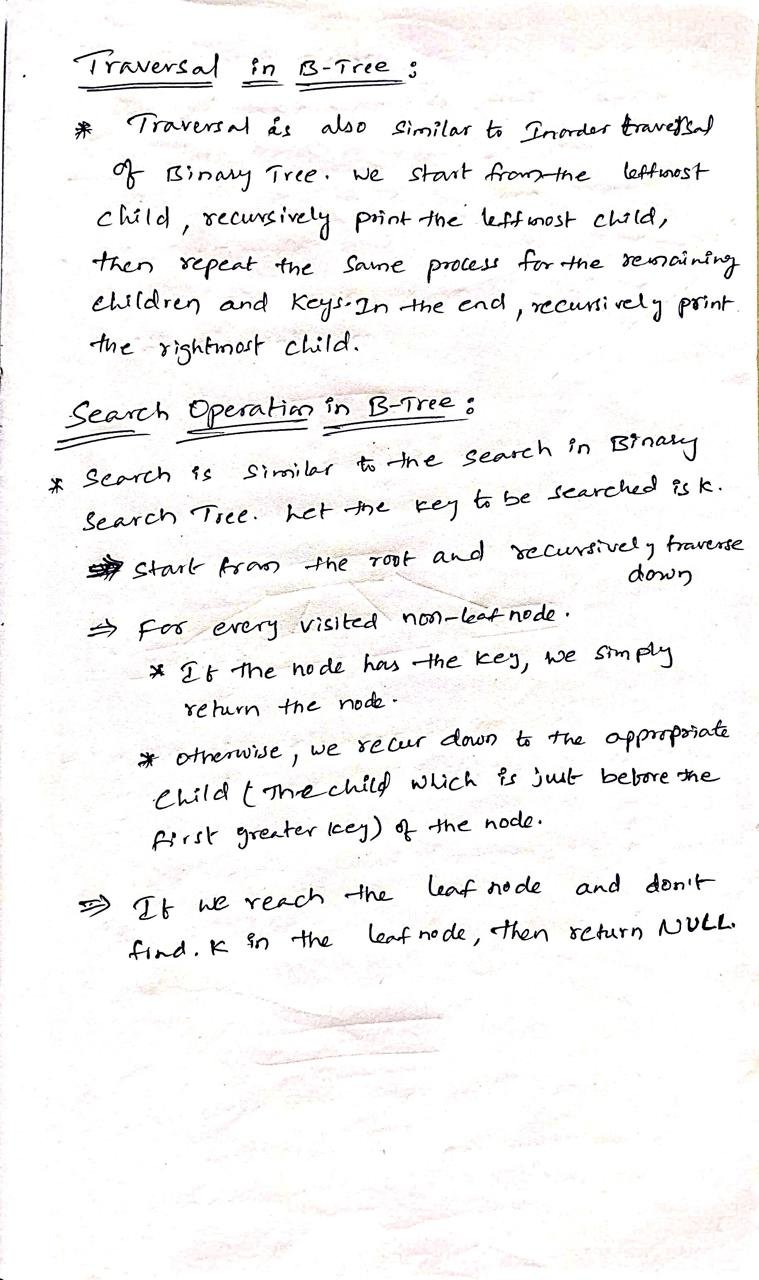 Traversal in B-Tree :
* Traversal is also similar to Inorder traversal
of Binary Tree. we start from the leftmost
child, recursively print the leftmost child,
then repeat the same process for the remaining
children and keys. In the end, recursively print
the rightmost child.
Search Operation in B-Tree :
* Search is similar to the search in Binary
Search Tree. Let the key to be searched is k.
⇒ Start from the root and recursively traverse
down
⇒ For every visited non-leaf node.
* If the node has the key, we simply
return the node.
* otherwise, we recur down to the appropriate
child (The child which is just before the
first greater key) of the node.
⇒ If we reach the leaf node and don't
find. K in the leaf node, then return NULL.